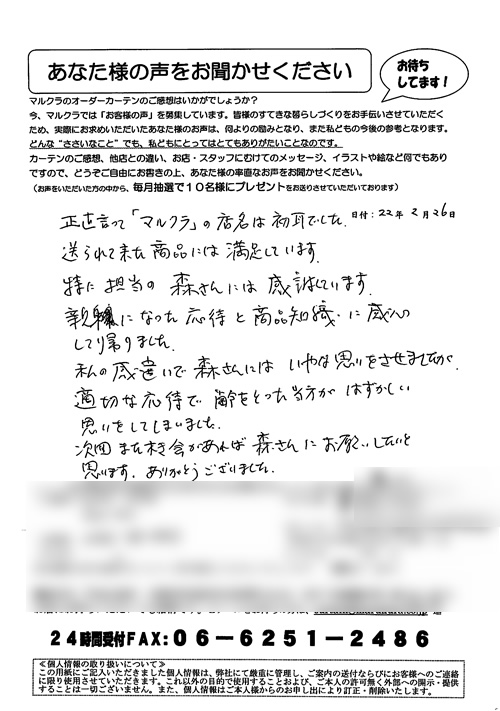 あなた様の声をお聞かせください
お待ち
してます！
マルクラのオーダーカーテンのご感想はいかがでしょうか？
今、マルクラでは「お客様の声」を募集しています。皆様のすてきな暮らしづくりをお手伝いさせていただく
ため、実際にお求めいただいたあなた様のお声は、何よりの励みとなり、また私どもの今後の参考となります。
どんな“ささいなこと”でも、私どもにとってはとてもありがたいことなのです。
カーテンのご感想、他店との違い、お店・スタッフにむけてのメッセージ、イラストや絵など何でもあり
ですので、どうぞご自由にお書きの上、あなた様の率直なお声をお聞かせください。
（お声をいただいた方の中から、毎月抽選で１０名様にプレゼントをお送りさせていただいております）
日付：22年 2月26日
正直言って「マルクラ」の店名は初耳でした。
送られて来た商品には満足しています。
特に担当の森さんには感謝しています。
親身になった応待と商品知識に感心
して帰りました。
私の感違いで森さんにはいやな思いをさせましたが、
適切な応待で齢をとった当方がはずかしい
思いをしてしまいました。
次回また機会があれば森さんにお願いしたいと
思います。ありがとうございました。
２４時間受付FAX：０６－６２５１－２４８６
≪個人情報の取り扱いについて≫
この用紙にご記入いただきました個人情報は、弊社にて厳重に管理し、ご案内の送付ならびにお客様へのご連絡
に限り使用させていただきます。これ以外の目的で使用することおよび、ご本人の許可無く外部への開示・提供
することは一切ございません。また、個人情報はご本人様からのお申し出により訂正・削除いたします。